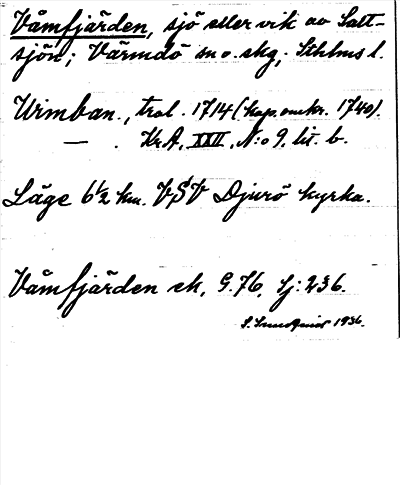 Vämfjärden, sjö eller vik av Salt-
sjön; Värmdö sn o. skg, Sthlms l.
Wimban., trol. 1714 (kop. omkr. 1740).
— . Kr.A, XXII, N:o 9, lit. b.
Läge 6 1/2 km. VSV Djurö kyrka.
Vämfjärden ek, G.76, Sj: 236.
S. 1936.